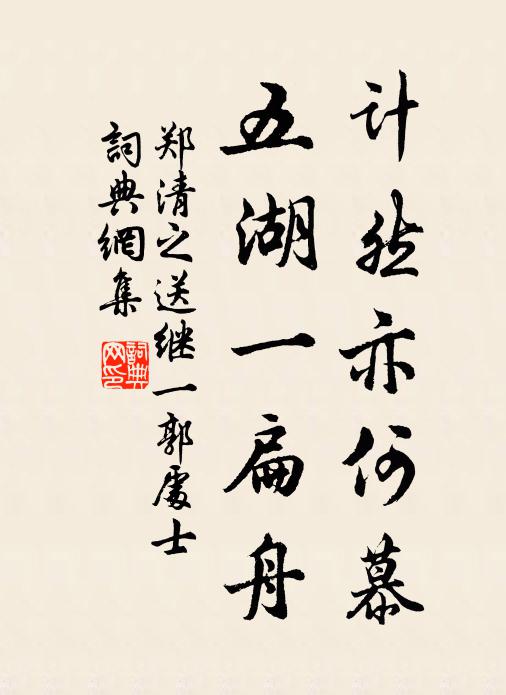 计然亦何慕
五湖一扁舟
郑清之送继一郭處士
詞典網集
詞典网印